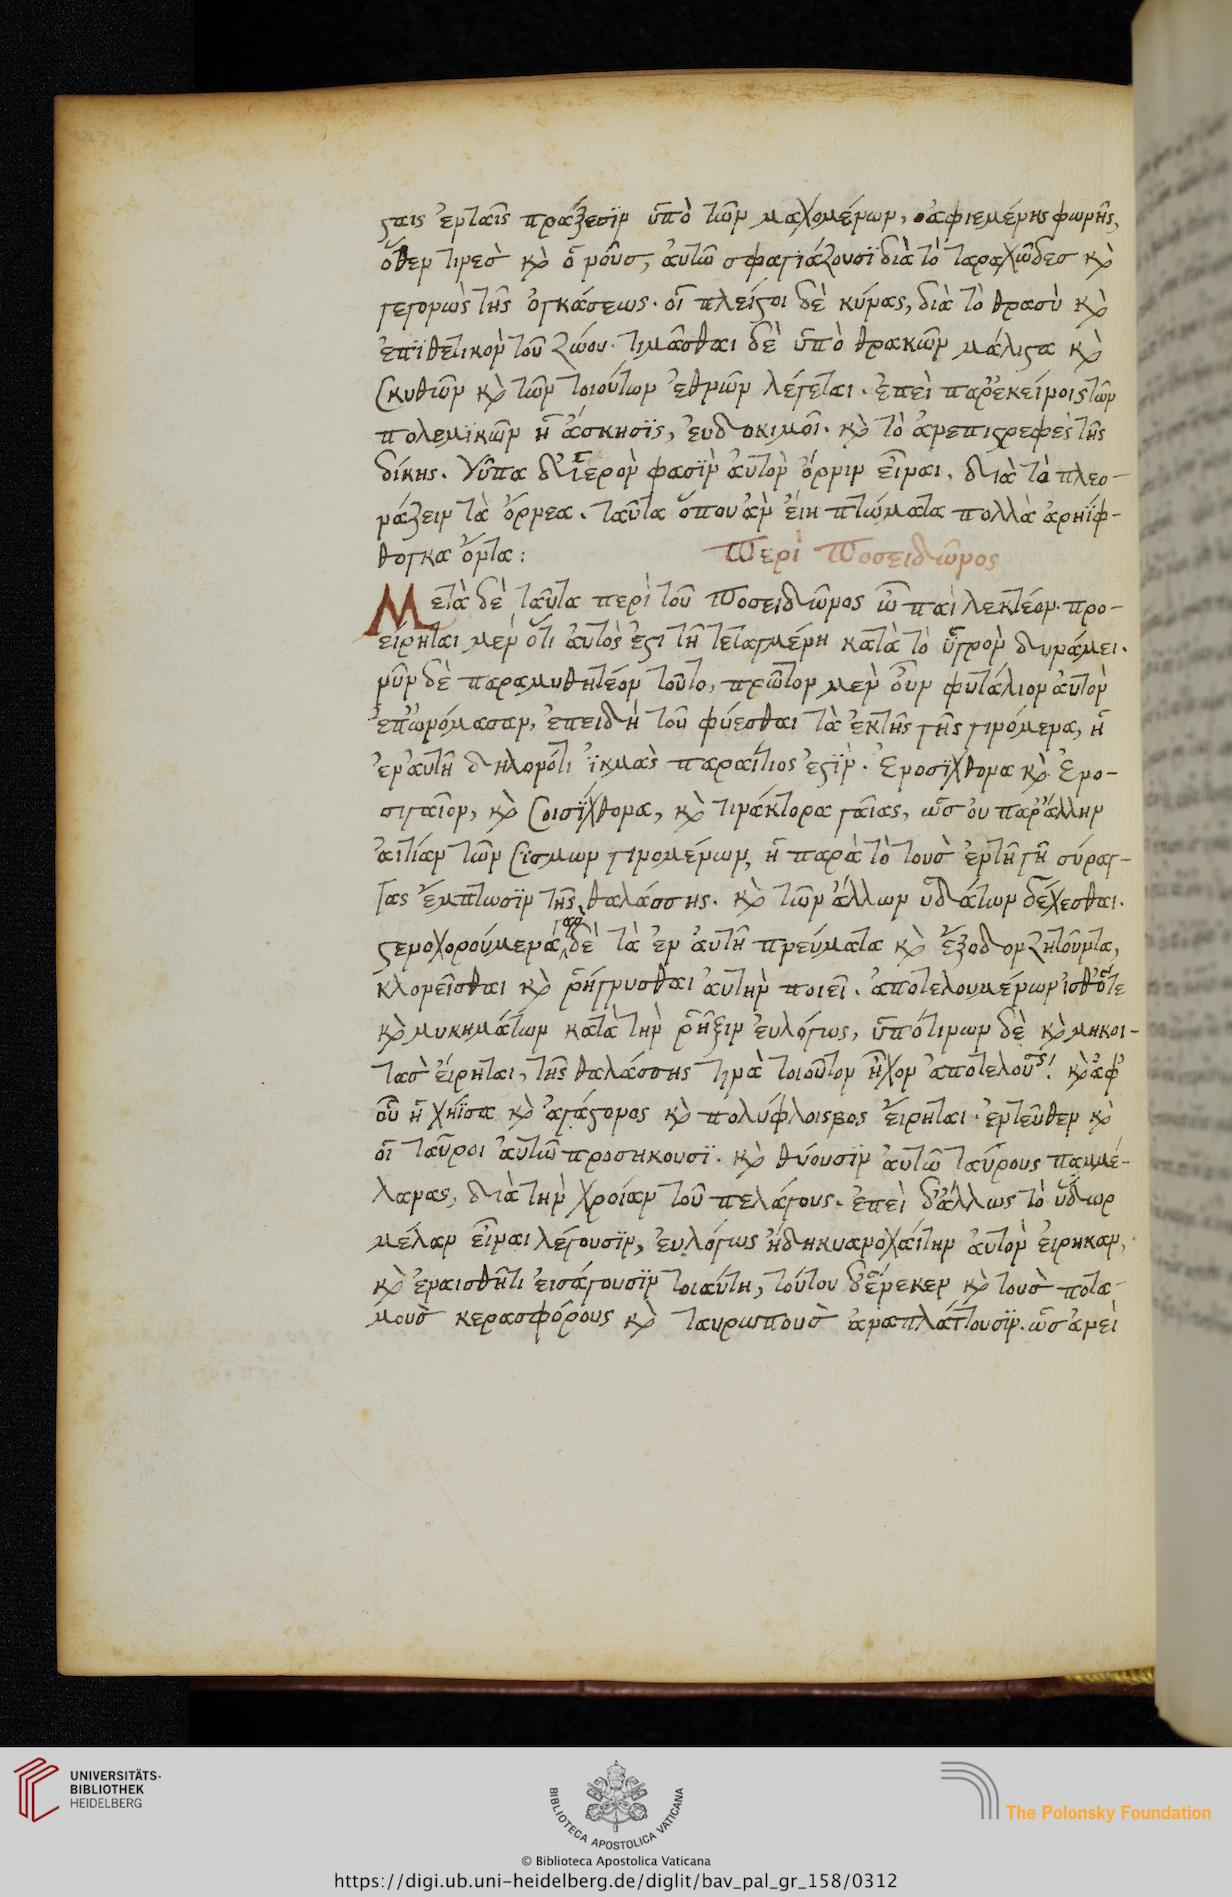 ςαις ἐνταῖς πράξεσϊν ὑπὸ τῶν μαχομένων, ἀφιεμένης φωνῆς,
ὅθεν τινεσ κὸ ὄνους, ἀυτῶ σφαγϊάζουσϊ διὰ τὸ ταραχῶδεσ κὸ
γεγονωὸς τῆς ὀγκάσεως. οἱ πλεῖςοι δὲ κύνας, διὰ τὸ θρασὺ κὸ
ἐπϊθετικὸν τοῦ ζώου. τιμᾶσθαι δὲ ὑπὸ θρακῶν μάλιςα κὸ
Σκυθῶν κὸ τῶν τοιούτων ἐθνῶν λέγεται. ἐπεὶ παρἐκείνοις τῶν
πολεμϊκῶν ἡ ἄσκησϊς, ἐυδοκιμοῖ. κὸ τὸ ἀνεπιςρεφὲς τῆς
δίκης. γῦπα δ'ἱερὸν φασϊν ἀυτὸν ὄρνιν εἶναι, διὰ τὸ πλεο-
νάζειν τὰ ὄρνεα. ταῦτα ὅπου ἂν ἔιη πτώματα πολλὰ ἀρηΐφ-
θογκα ὄντα:
Περὶ Ποσειδῶνος
Μετὰ δὲ ταῦτα περὶ τοῦ Ποσειδῶνος ὦ παὶ λεκτέον. προ-
είρηται μεν ὅτι ἀυτὸς ἐςι τῆ τεταγμένη κατὰ τὸ ὑγρὸν δυνάμει.
νῦν δὲ παραμυθητέον τοῦτο, πρῶτον μεν οὖν φυτάλιον ἀυτὸν
ἐπὠνόμασαν, ἐπειδὴ τοῦ φύεσθαι τὰ ἐκτῆς γῆς γινόμενα, ἡ
ἐν ἀυτῆ δηλονότι ἰκμὰς παραίτιος ἐςϊν. Ἐνοσϊχθονα κὸ Ἐνο-
σιγαῖον, κὸ Σοισϊχθονα, κὸ τινάκτορα γαίας, ὡσ ὀυ παρἄλλην
ἀιτίαν τῶν Σισμων γινομένων, ἢ παρὰ τὸ τουσ ἐντῆ γῆ σύραγ-
γας ἔμπτωσϊν τῆς θαλάσσης. κὸ τῶν ἄλλων ὑδάτων δἔχεσθαι.
ςενοχορούμενα γαρ δὲ τὰ ἐν ἀυτῆ πνεύματα κὸ ἔξοδον ζητοῦντα,
κλονεῖσθαι κὸ ῥήγνυσθαι ἀυτὴν ποιεῖ. ἀποτελουμένων ἰσθ'ὅτε
κὸ μυκημάτων κατὰ τὴν ῥῆξιν ἐυλόγως, ὑπότινων δὲ κὸ μηκοι-
τασ ἔιρηται, τῆς θαλάσσης τινὰ τοιοῦτον ἦχον ἀποτελούσ! κὸ ἀφ'
οὗ ἡ χήϊσα κὸ ἀγάςονος κὸ πολύφλοισβος ἔιρηται. ἐντεῦθεν κὸ
οἱ ταῦροι ἀυτῶ προσηκουσϊ. κὸ θύουσϊν ἀυτῶ ταύρους παμμέ-
λανας, διὰ τὴν χροίαν τοῦ πελάγους. ἐπεὶ δ'ἄλλως τὸ ὕδωρ
μέλαν εἶναι λέγουσϊν, ἐυλόγως ἤδη κυανοχαίτην ἀυτὸν ἐιρηκαν,
κὸ ἐναισθῆτι ἐισάγουσϊν τοιαύτη, τούτου δἕνεκεν κὸ τουσ ποτα-
μουσ κερασφόρους κὸ ταυρωπουσ ἀναπλάττουσϊν. ὡσἀνεὶ
UNIVERSITÄTS-
BIBLIOTHEK
HEIDELBERG
BIBLIOTECA APOSTOLICA VATICANA
The Polonsky Foundation
© Biblioteca Apostolica Vaticana
https://digi.ub.uni-heidelberg.de/diglit/bav_pal_gr_158/0312